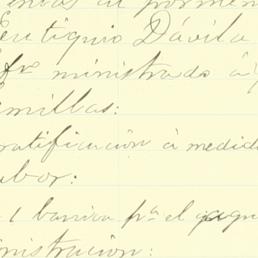 Eutiquio Dávila
ministrado á
millas:
ratificación á medida
abor:
1 barrica pª el
nistración: